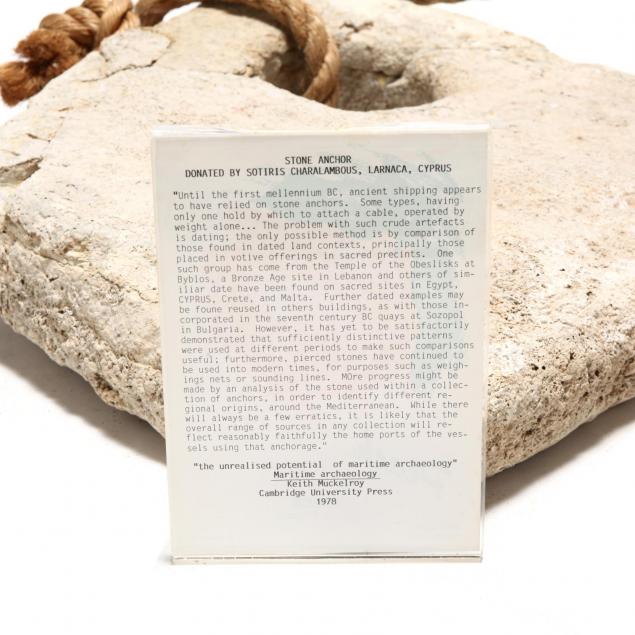 STONE ANCHOR
DONATED BY SOTIRIS CHARALAMBOUS, LARNACA, CYPRUS
"Until the first mellennium BC, ancient shipping appears
to have relied on stone anchors.  Some types, having
only one hold by which to attach a cable, operated by
weight alone... The problem with such crude artefacts
is dating; the only possible method is by comparison of
those found in dated land contexts, principally those
placed in votive offerings in sacred precints.  One
such group has come from the Temple of the Obeslisks at
Byblos, a Bronze Age site in Lebanon and others of sim-
iliar date have been found on sacred sites in Egypt,
CYPRUS, Crete, and Malta.  Further dated examples may
be foune reused in others buildings, as with those in-
corporated in the seventh century BC quays at Sozopol
in Bulgaria.  However, it has yet to be satisfactorily
demonstrated that sufficiently distinctive patterns
were used at different periods to make such comparisons
useful; furthermore, pierced stones have continued to
be used into modern times, for purposes such as weigh-
ings nets or sounding lines.  MOre progress might be
made by an analysis of the stone used within a collec-
tion of anchors, in order to identify different re-
gional origins, around the Mediterranean.  While there
will always be a few erratics, it is likely that the
overall range of sources in any collection will re-
flect reasonably faithfully the home ports of the ves-
sels using that anchorage."
"the unrealised potential  of maritime archaeology"
Maritime archaeology
Keith Muckelroy
Cambridge University Press
1978